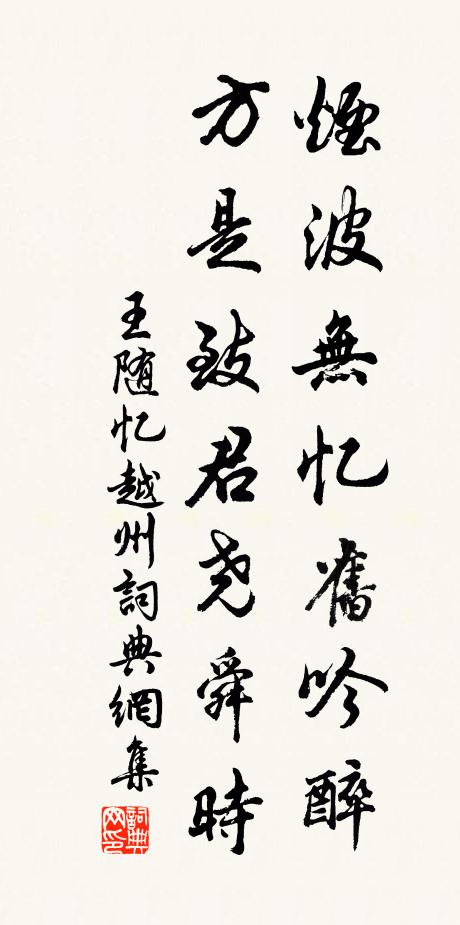 煙波無忆舊吟醉
方是致君尧舜時
王随忆越州詞典網集
詞典網印